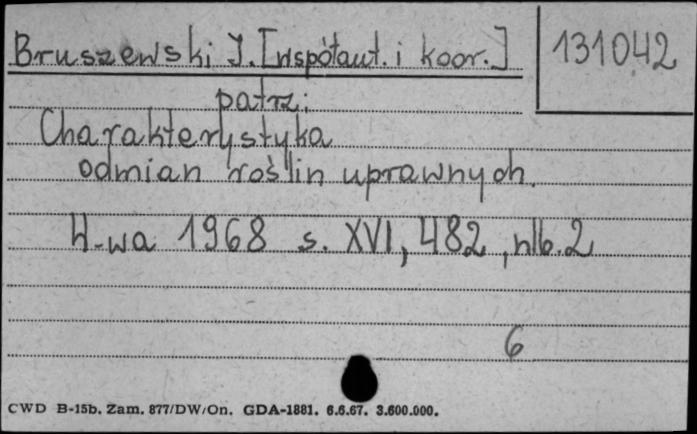 Bruszewski J. [współaut. i koor.]
131042
patrz:
Charakterystyka
odmian roślin uprawnych.
W-wa 1968 s. XVI, 482, nlb. 2
6
CWD B-15b. Zam. 877/DW/On. GDA-1881. 6.6.67. 3.600.000.